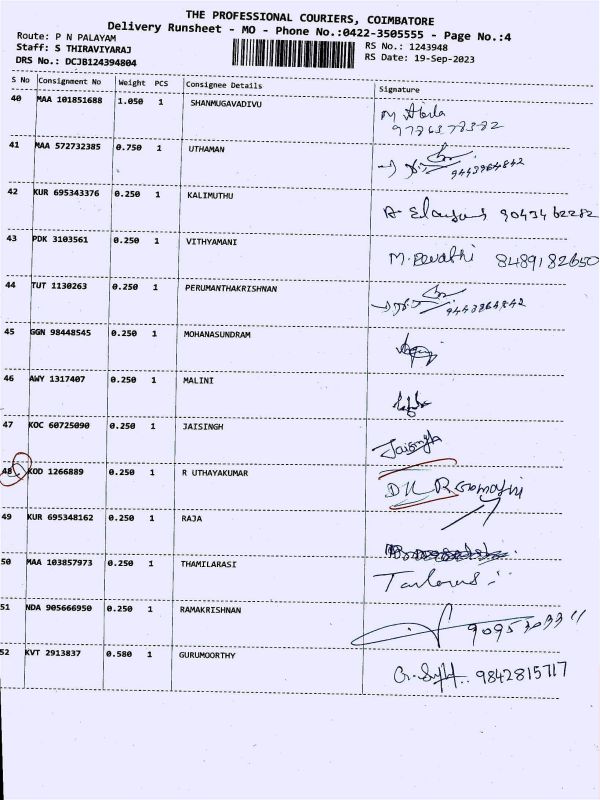 THE PROFESSIONAL COURIERS, COIMBATORE
Delivery Runsheet - MO - Phone No.:0422-3505555 - Page No.:4
Route: P N PALAYAM
RS No.: 1243948
Staff: S THIRAVIYARAJ
RS Date: 19-Sep-2023
DRS No.: DCJB124394804
S No Consignment No Weight PCS Consignee Details Signature
40 MAA 101851688 1.050 1 SHANMUGAVADIVU
41 MAA 572732385 0.750 1 UTHAMAN
42 KUR 695343376 0.250 1 KALIMUTHU
43 PDK 3103561 0.250 1 VITHYAMANI M. Revathi 8489182650
44 TUT 1130263 0.250 1 PERUMANTHAKRISHNAN
45 GGN 98448545 0.250 1 MOHANASUNDRAM
46 AWY 1317407 0.250 1 MALINI
47 KOC 60725090 0.250 1 JAISINGH Jaisingh
48 KOD 1266889 0.250 1 R UTHAYAKUMAR
49 KUR 695348162 0.250 1 RAJA
50 MAA 103857973 0.250 1 THAMILARASI
51 NDA 905666950 0.250 1 RAMAKRISHNAN
52 KVT 2913837 0.580 1 GURUMOORTHY 9842815717